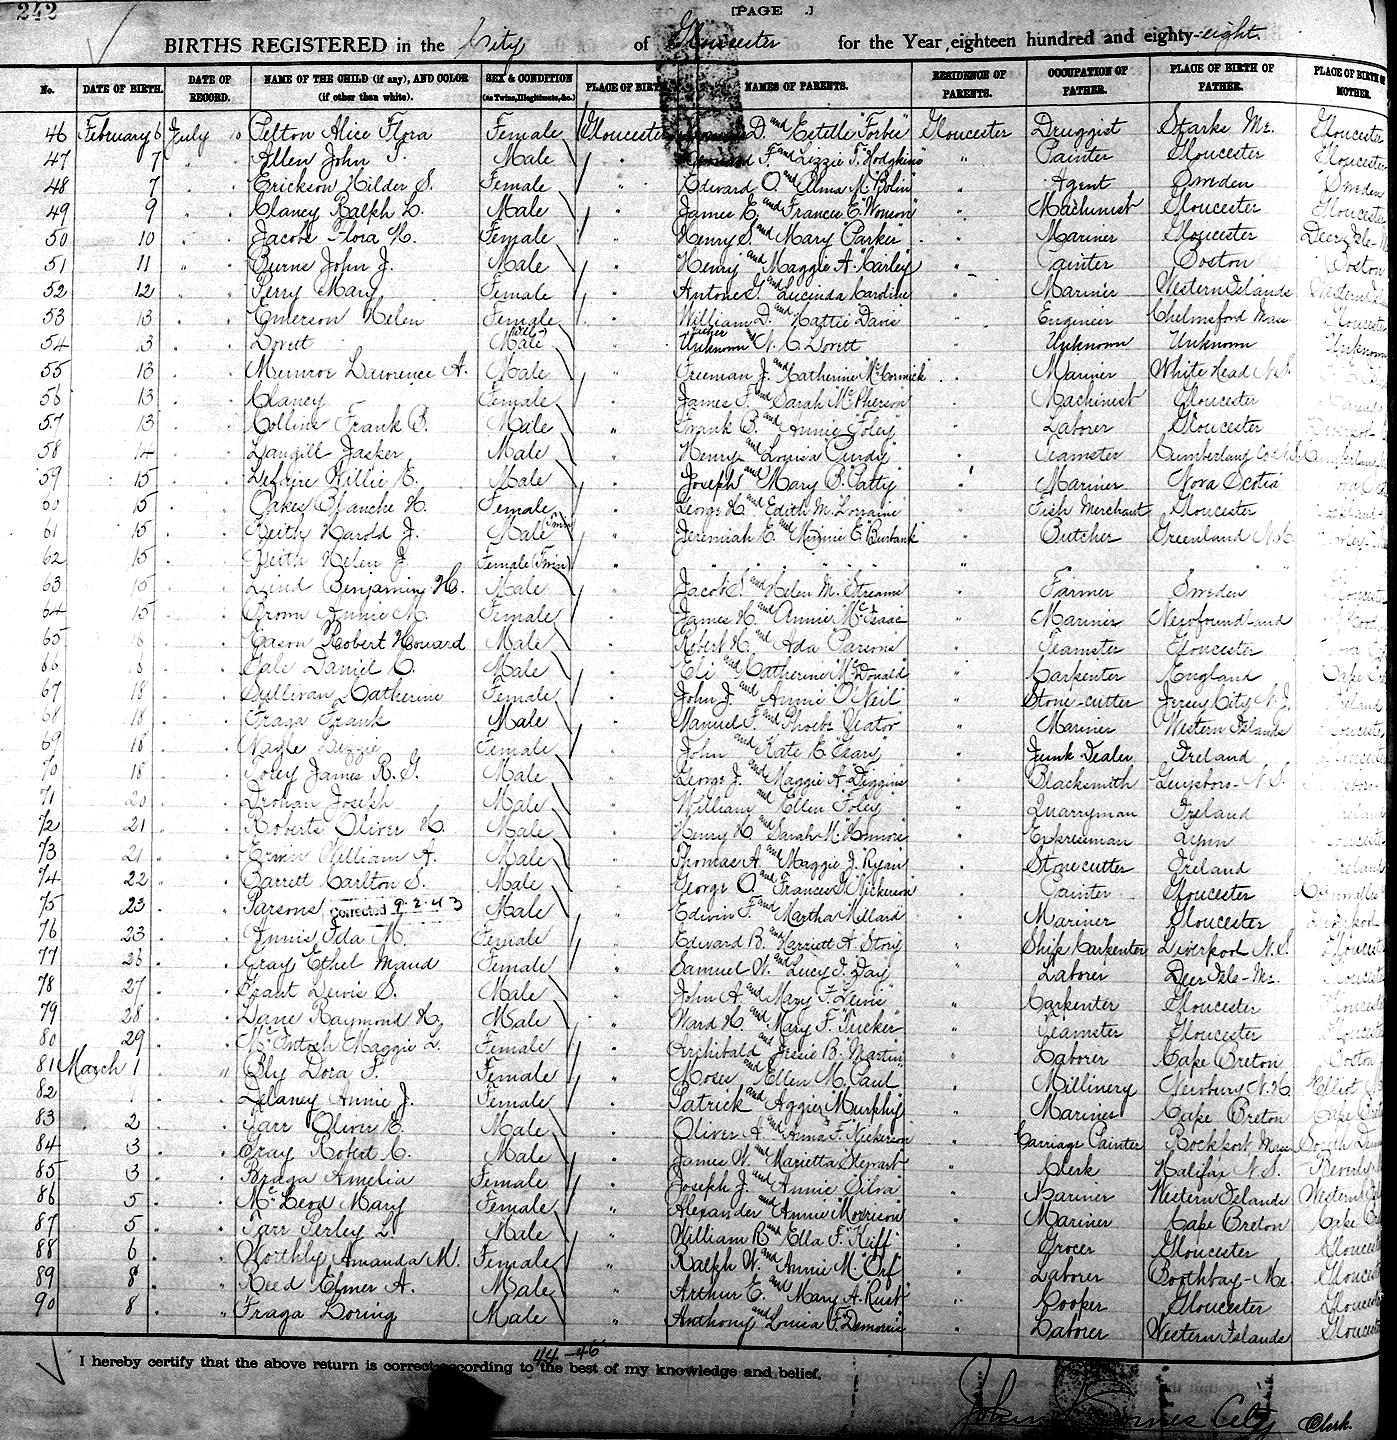 242
[PAGE .]
BIRTHS REGISTERED in the City of Gloucester for the Year eighteen hundred and eighty-eight
No. DATE OF BIRTH. DATE OF RECORD. NAME OF THE CHILD (if any), AND COLOR (if other than white). SEX & CONDITION (as Twins, Illegitimate, &c.) PLACE OF BIRTH NAMES OF PARENTS. RESIDENCE OF PARENTS. OCCUPATION OF FATHER. PLACE OF BIRTH OF FATHER. PLACE OF BIRTH OF MOTHER.
46 February 6 July 10 Pelton Alice Flora Female Gloucester D. and Estelle "Forbes" Gloucester Druggist Starks Me. Gloucester
47 7 " Allen John F. Male " F. and Lizzie F. "Hodgkins" " Painter Gloucester Gloucester
48 7 " Erickson Hilder S. Female " Edward O. and Alma M. "Bolin" " Agent Sweden Sweden
49 9 " Clancy Ralph L. Male " James E. and Frances E. "Wonson" " Machinist Gloucester Gloucester
50 10 " Jacobs Flora H. Female " Henry S. and Mary "Parker" " Mariner Gloucester Deer Isle
51 11 " Burns John J. Male " Henry and Maggie A. "Carley" " Painter Boston Boston
52 12 " Perry Mary Female " Antone S. and Lucinda Caroline " Mariner Western Islands Western
53 13 " Emerson Helen Female " William D. and Hattie Davis " Engineer Chelmsford Mass Gloucester
54 13 " Dovett Male " Unknown and N. C. Dovett " Unknown Unknown Unknown
55 13 " Munroe Lawrence A. Male " Freeman J. and Katherine "McCormick " Mariner White Head N.S.
56 13 " Clancy Female " James F. and Sarah McPherson " Machinist Gloucester
57 13 " Collins Frank B. Male " Frank B. and Annie "Foley" " Laborer Gloucester Liverpool
58 14 " Langill Jasker Male " Henry and Louisa "Purdy" " Teamster Cumberland Co. N.S. Cumberland
59 15 " Willie E. Male " Joseph and Mary B. "Patty" " Mariner Nova Scotia
60 15 " Oakes Blanche H. Female " George H. and Edith M. "Lorraine" " Fish Merchant Gloucester
61 15 " Keith Harold J. Male Twin " Jeremiah E. and Minnie E. "Burbank" " Butcher Greenland N.H.
62 15 " Keith Helen J. Female (Twin) " " " " " "
63 15 " Lind Benjamin H. Male " Jacob S. and Helen M. Streams " Farmer Sweden Gloucester
64 15 " Brown Annie M. Female " James H. and Annie "McIsaac " Mariner Newfoundland
65 Eason Robert Howard Male " Robert H. and Ada Parsons " Teamster Gloucester
66 18 " Gale Daniel C. Male " Eli and Catherine "McDonald" " Carpenter England Cape
67 18 " Sullivan Katherine Female " John J. and Annie "O'Neil" " Stone-cutter Jersey City N.J. Ireland
68 18 " Fraga Frank Male " Manuel F. and Phoebe Yeator " Mariner Western Islands Gloucester
69 18 " Nagle Lizzie Female " John and Kate E. Geary " Junk Dealer Ireland
70 18 " Torey James R. G. Male " George J. and Maggie A. "Diggins" " Blacksmith Guysboro - N.S.
71 20 " Drohan Joseph Male " William and Ellen "Foley" " Quarryman Ireland Ireland
72 21 " Roberts Oliver H. Male " Henry H. and Sarah M. " Expressman Lynn
73 21 " Erwin William A. Male " Thomas A. and Maggie J. "Ryan" " Stonecutter Ireland Ireland
74 22 " Barrett Carlton S. Male " George O. and Frances J. "Nickerson" " Painter Gloucester Cornwallis
75 23 " Parsons Corrected 9-2-43 Male " Edwin F. and Martha Millard " Mariner Gloucester Liverpool
76 23 " Annis Ida M. Female " Edward B. and Harriett A. Story " Ship Carpenter Liverpool N.S. Gloucester
77 26 " Gray Ethel Maud Female " Samuel W. and Lucy J. Day " Laborer Deer Isle - Me. Gloucester
78 27 " Grant Lewis S. Male " John A. and Mary F. "Lewis" " Carpenter Gloucester Gloucester
79 28 " Dane Raymond H. Male " Ward H. and Mary F. "Tucker" " Teamster Gloucester Gloucester
80 29 " McIntosh Maggie L. Female " Archibald and Jessie B. "Martin" " Laborer Cape Breton Boston
81 March 1 " Bly Dora F. Female " Moses and Ellen M. Paul " Millinery Newbury N.H. Elliot
82 1 " Delaney Annie J. Female " Patrick and Aggie "Murphy" " Mariner Cape Breton Cape
83 2 " Tarr Oliver C. Male " Oliver A. and Anna F. "Nickerson" " Carriage Painter Rockport Mass South
84 3 " Gray Robert C. Male " James W. and Marietta Stewart " Clerk Halifax N.S. Beverly
85 3 " Braga Amelia Female " Joseph J. and Annie "Silva" " Mariner Western Islands Western
86 5 " McLeod Mary Female " Alexander and Annie "Morrison" " Mariner Cape Breton Cape
87 5 " Tarr Perley L. Male " William R. and Ella F. "Kiff" " Grocer Gloucester Gloucester
88 6 " Worthly Amanda M. Female " Ralph W. and Annie M. "Orf" " Laborer Boothbay-Me. Gloucester
89 8 " Reed Elmer A. Male " Arthur E. and Mary A. "Rust" " Cooper Gloucester Gloucester
90 8 " Fraga Loring Male " Anthony and Louisa F. "Demorris " Laborer Western Islands Gloucester
44-46
I hereby certify that the above return is correct according to the best of my knowledge and belief.
John J. Somes City Clerk.